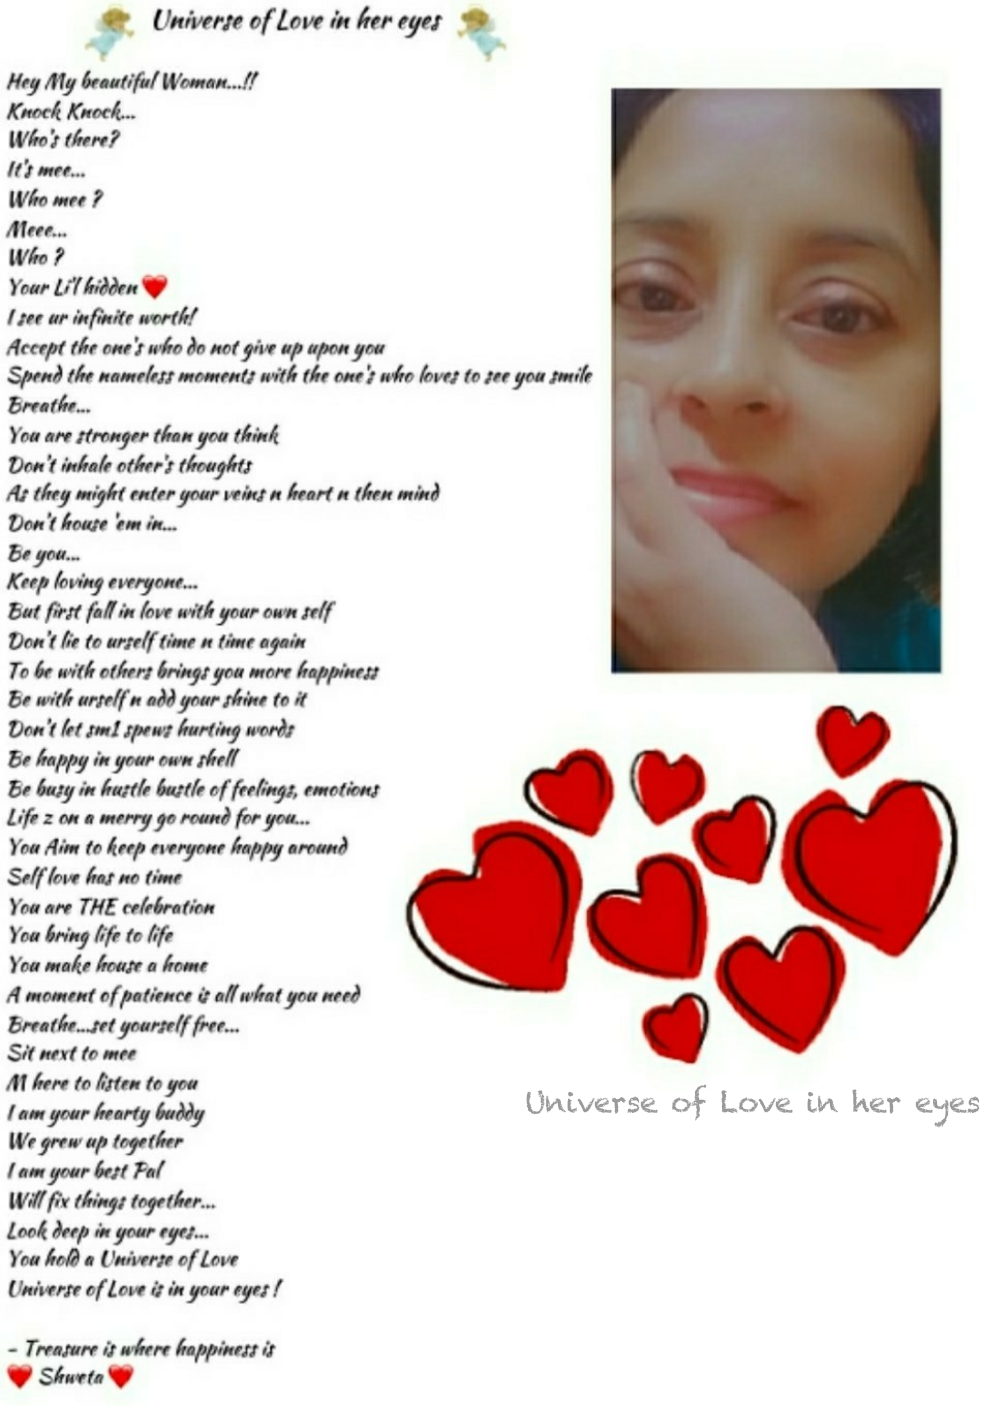 Universe of Love in her eyes
Hey My beautiful Woman...!!
Knock Knock...
Who's there?
It's mee...
Who mee ?
Meee...
Who ?
Your Li'l hidden ❤️
I see ur infinite worth!
Accept the one's who do not give up upon you
Spend the nameless moments with the one's who loves to see you smile
Breathe...
You are stronger than you think
Don't inhale other's thoughts
As they might enter your veins n heart n then mind
Don't house 'em in...
Be you...
Keep loving everyone...
But first fall in love with your own self
Don't lie to urself time n time again
To be with others brings you more happiness
Be with urself n add your shine to it
Don't let sm1 spews hurting words
Be happy in your own shell
Be busy in hustle bustle of feelings, emotions
Life z on a merry go round for you...
You Aim to keep everyone happy around
Self love has no time
You are THE celebration
You bring life to life
You make house a home
A moment of patience is all what you need
Breathe...set yourself free...
Sit next to mee
M here to listen to you
I am your hearty buddy
We grew up together
I am your best Pal
Will fix things together...
Look deep in your eyes...
You hold a Universe of Love
Universe of Love is in your eyes !
- Treasure is where happiness is
❤️ Shweta ❤️
Universe of Love in her eyes